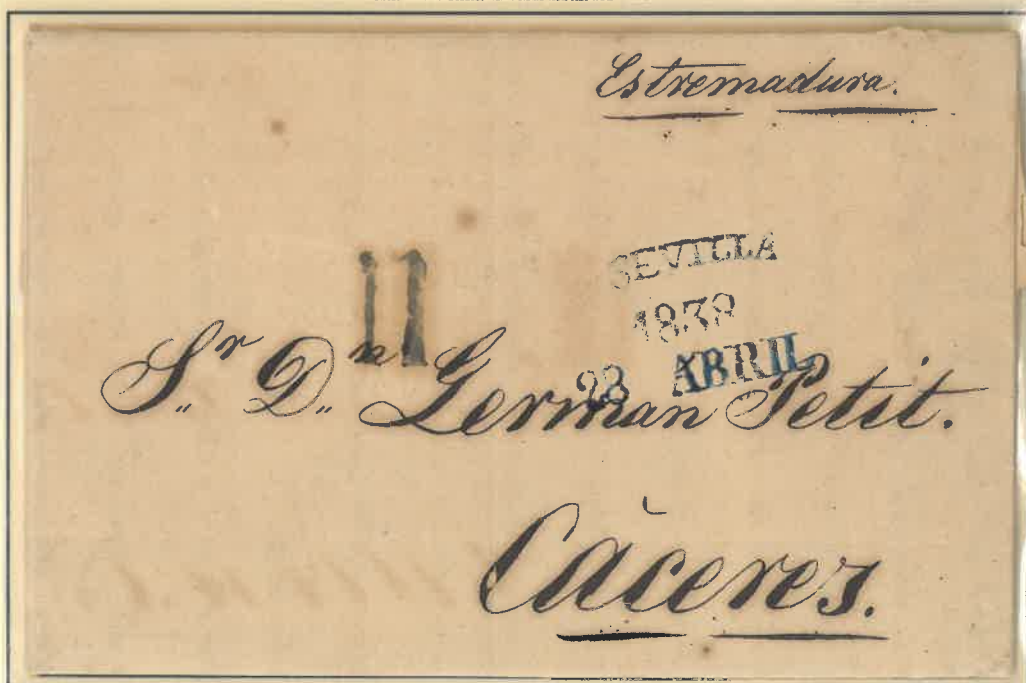 Estremadura.
11
SEVILLA
1838
23 ABRIL
Sr. Dn. German Petit.
Càceres.